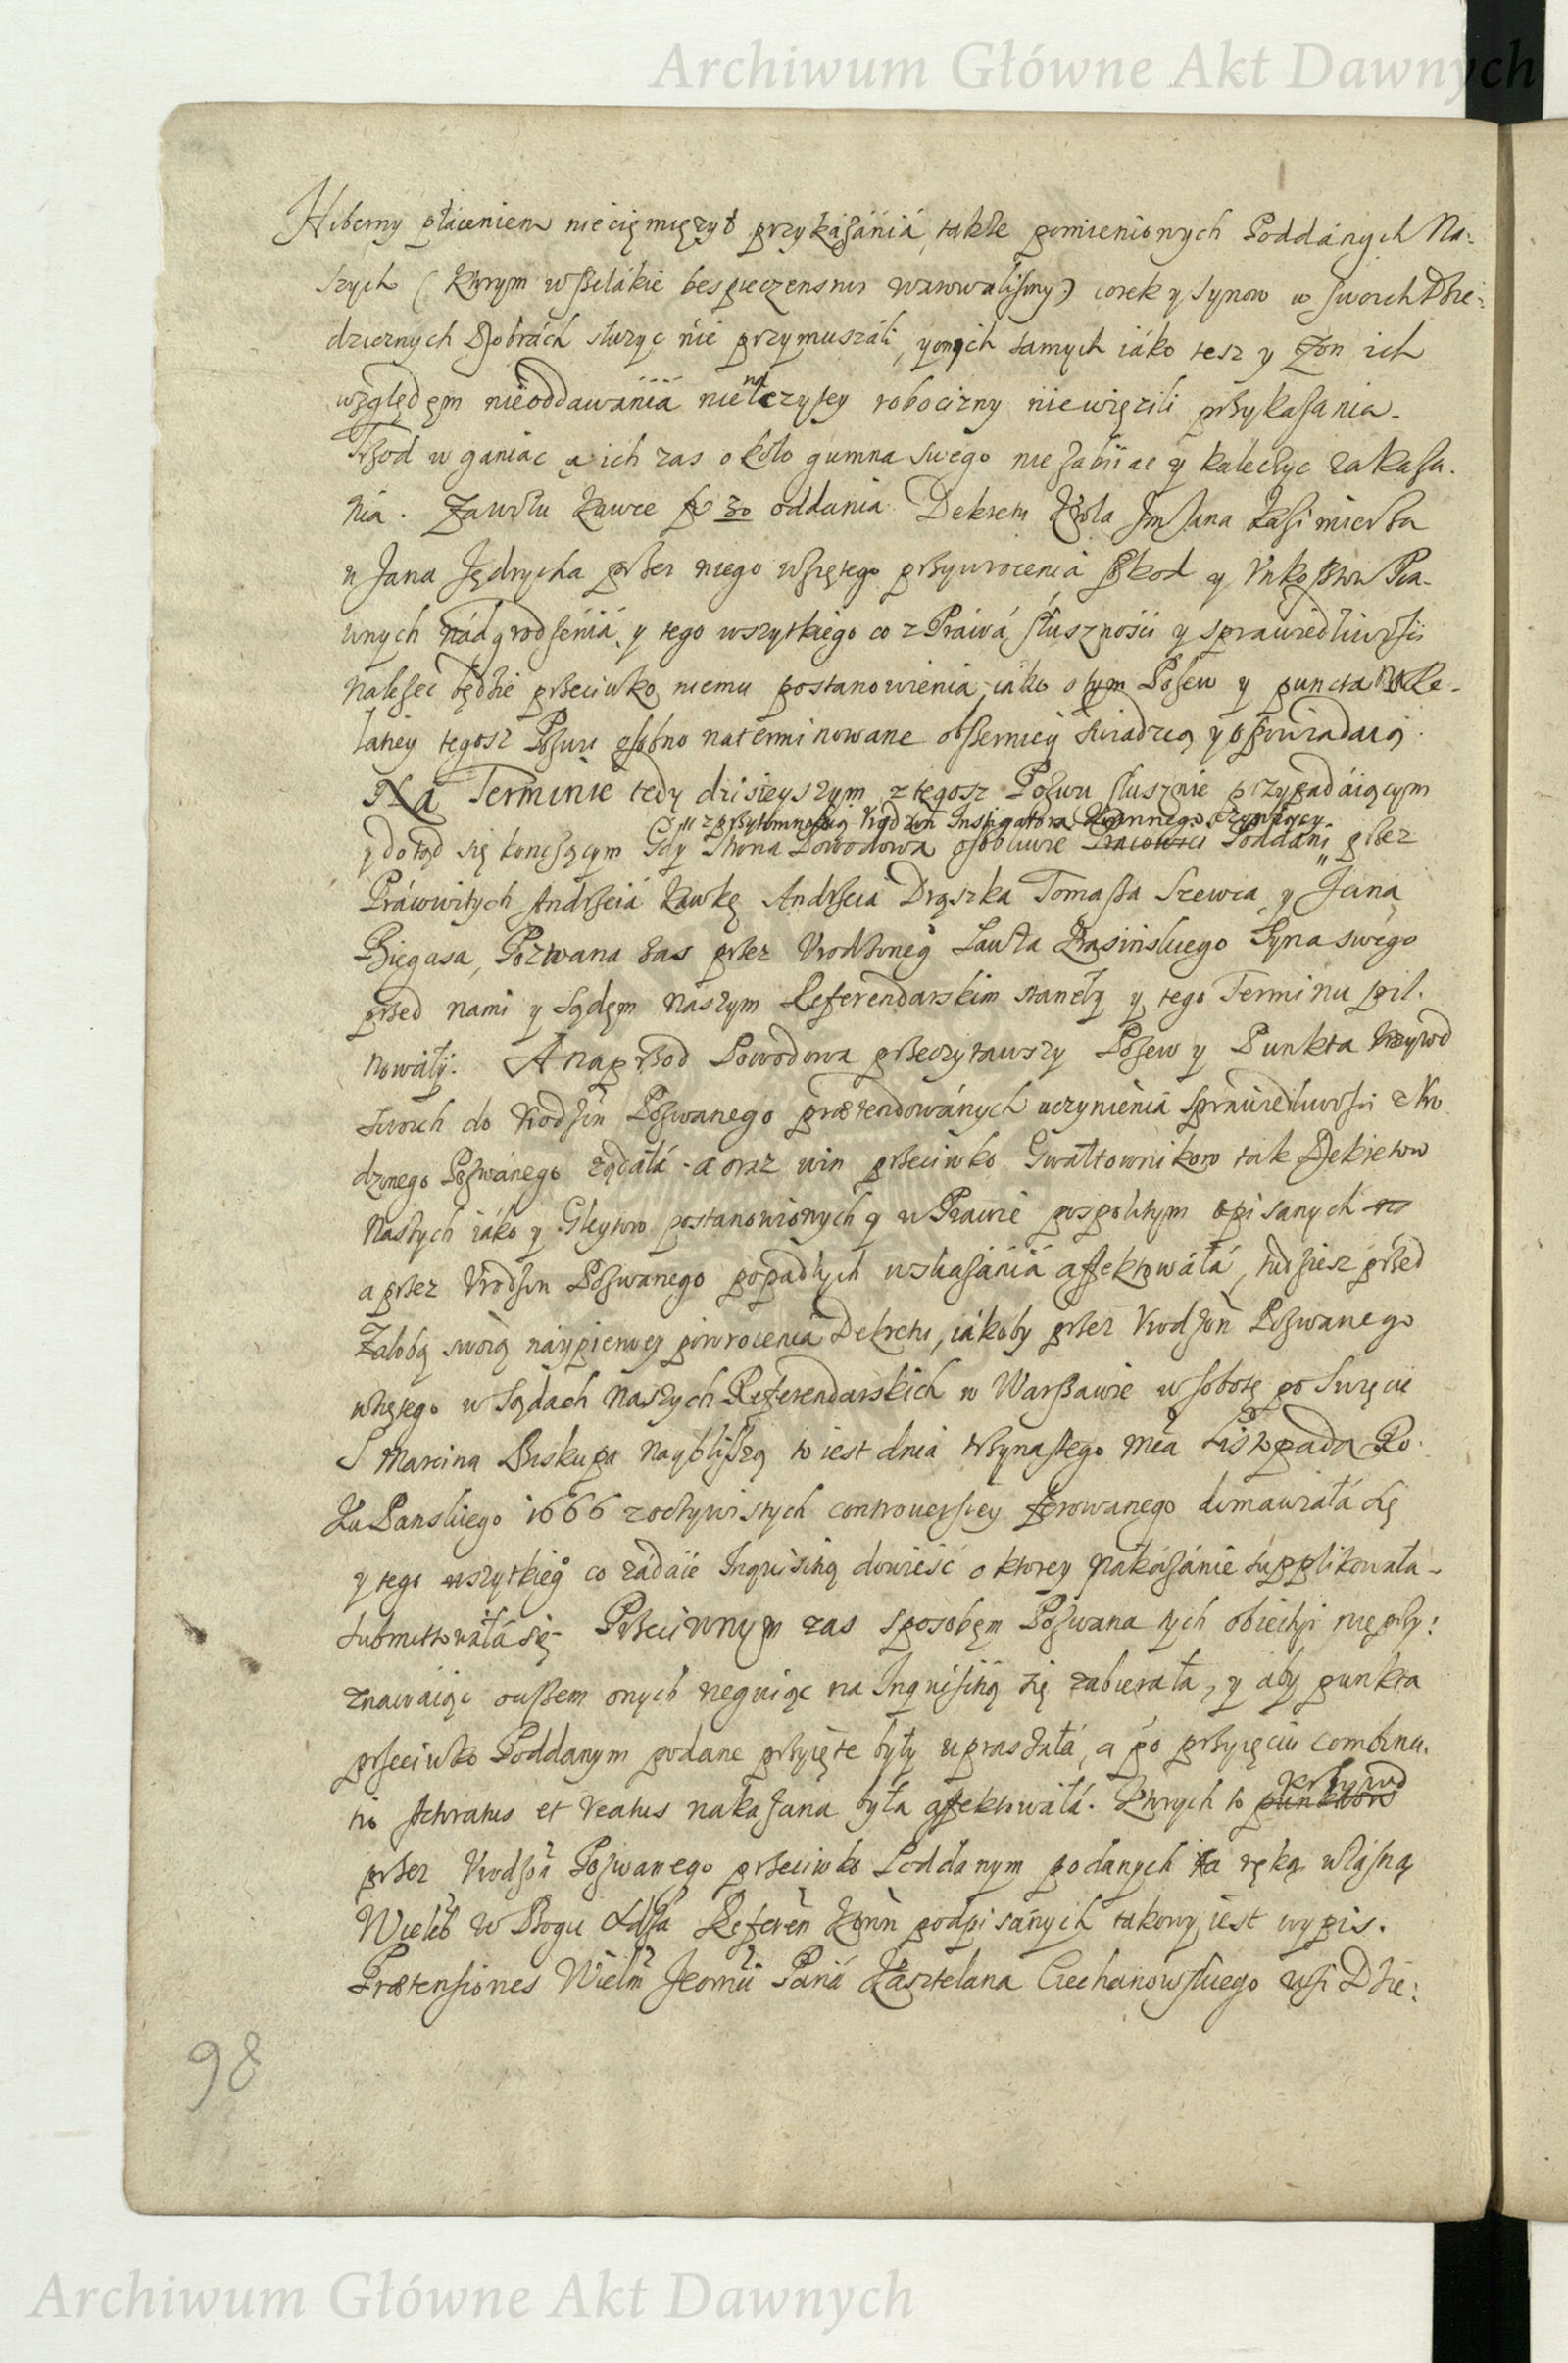 Archiwum Główne Akt Dawnych
Hiberny płaceniem niecięmięzył przykazania, także pomienionych Poddanych Na-
szych (ktorym wszelakie bespieczenstwo warowalismy) corek y synow w swoich Dzie-
dzicznych Dobrach służyc nie przymuszali, y onych samych iako tesz y Zon ich
względęm nieoddawania nienalezytey robocizny niewięzili przykazania.
Trzod w ganiac a ich zas około gumna swego nie zabiiac y kaleczyc zakaza-
nia. oddania Dekretu Krola Jm Jana Kazimierza
u Jana Jędrycha przez niego wziętego przywrocenia szkod y Vnkosztow Pra-
wnych nadgrodzenia y tego wszytkiego co z Prawa, słusznosci y sprawiedliwosci
nalezec będzie przeciwko niemu postanowienia, iako o tym Pozew y puncta w Re-
latiey tegosz Pozwu osobno naterminowane obszerniey swiadczą y opowiadaią.
Na Terminie tedy dzisieyszym z tegosz Pozwu słusznie przypadaiącym
z przytomnoscią Vrodzon Instigatora Koronnego
y dotąd się konczącym Gdy Strona Powodowa osobliwie Pracowici Poddani przez
Prawowitych Andrzeia Kawkę Andrzeia Drąszka Tomasza Szewca, y Jana
Biegasa, Pozwana zas przez Vrodzoneg Pawła Krasinskiego Syna swego
przed nami y Sądęm naszym Referendarskim stanęły y tego Terminu pil-
nowały. A naprzod Powodowa przeczytawszy Pozew y Punkta krzywd
swoich do Vrodzon Pozwanego prætendowanych uczynienia sprawiedliwosci z Vro
dzonego Pozwanego ządała a oraz win przeciwko Gwałtownikom tak Dekretow
Naszych iako y Gleytow postanowionych y w Prawie pospolitym opisanych
a przez Vrodzon Pozwanego popadłych wskazania affektowała, tudziesz przed
Załobą swoią naypierwey powrocenia Dekretu, iakoby przez Vrodzon Pozwanego
wziętego w Sądach naszych Referendarskich w Warszawie w sobotę po Swięcie
S Marcina Biskupa nayblizszą to iest dnia trzynastego mca Listopada Ro-
ku Panskiego 1666 z oczywistych controwersiey ferowanego domawiała się
y tego wszytkieg co zadaie Inquisitią dowiesc o ktorey nakazanie supplikowała
submittowała się. Przeciwnym zas sposobęm Pozwana tych obiectyi nie przy-
znawaiąc owszem onych neguiąc na Inquisitią się zabierała, y aby punkta
przeciwko Poddanym podane przyięte były upraszała, a po przyięciu combina-
tio Actoratus et reatus nakazana była affektowała. Ktorych to punktow krzywd
przez Vrodzon Pozwanego przeciwko Poddanym podanych ręką własną
Wieleb w Bogu Referen Koron podpisanych takowy iest wypis.
Prætensiones Wielm Jeomci Pana Kasztelana Ciechanowskiego wsi Dzie-
98
Archiwum Główne Akt Dawnych